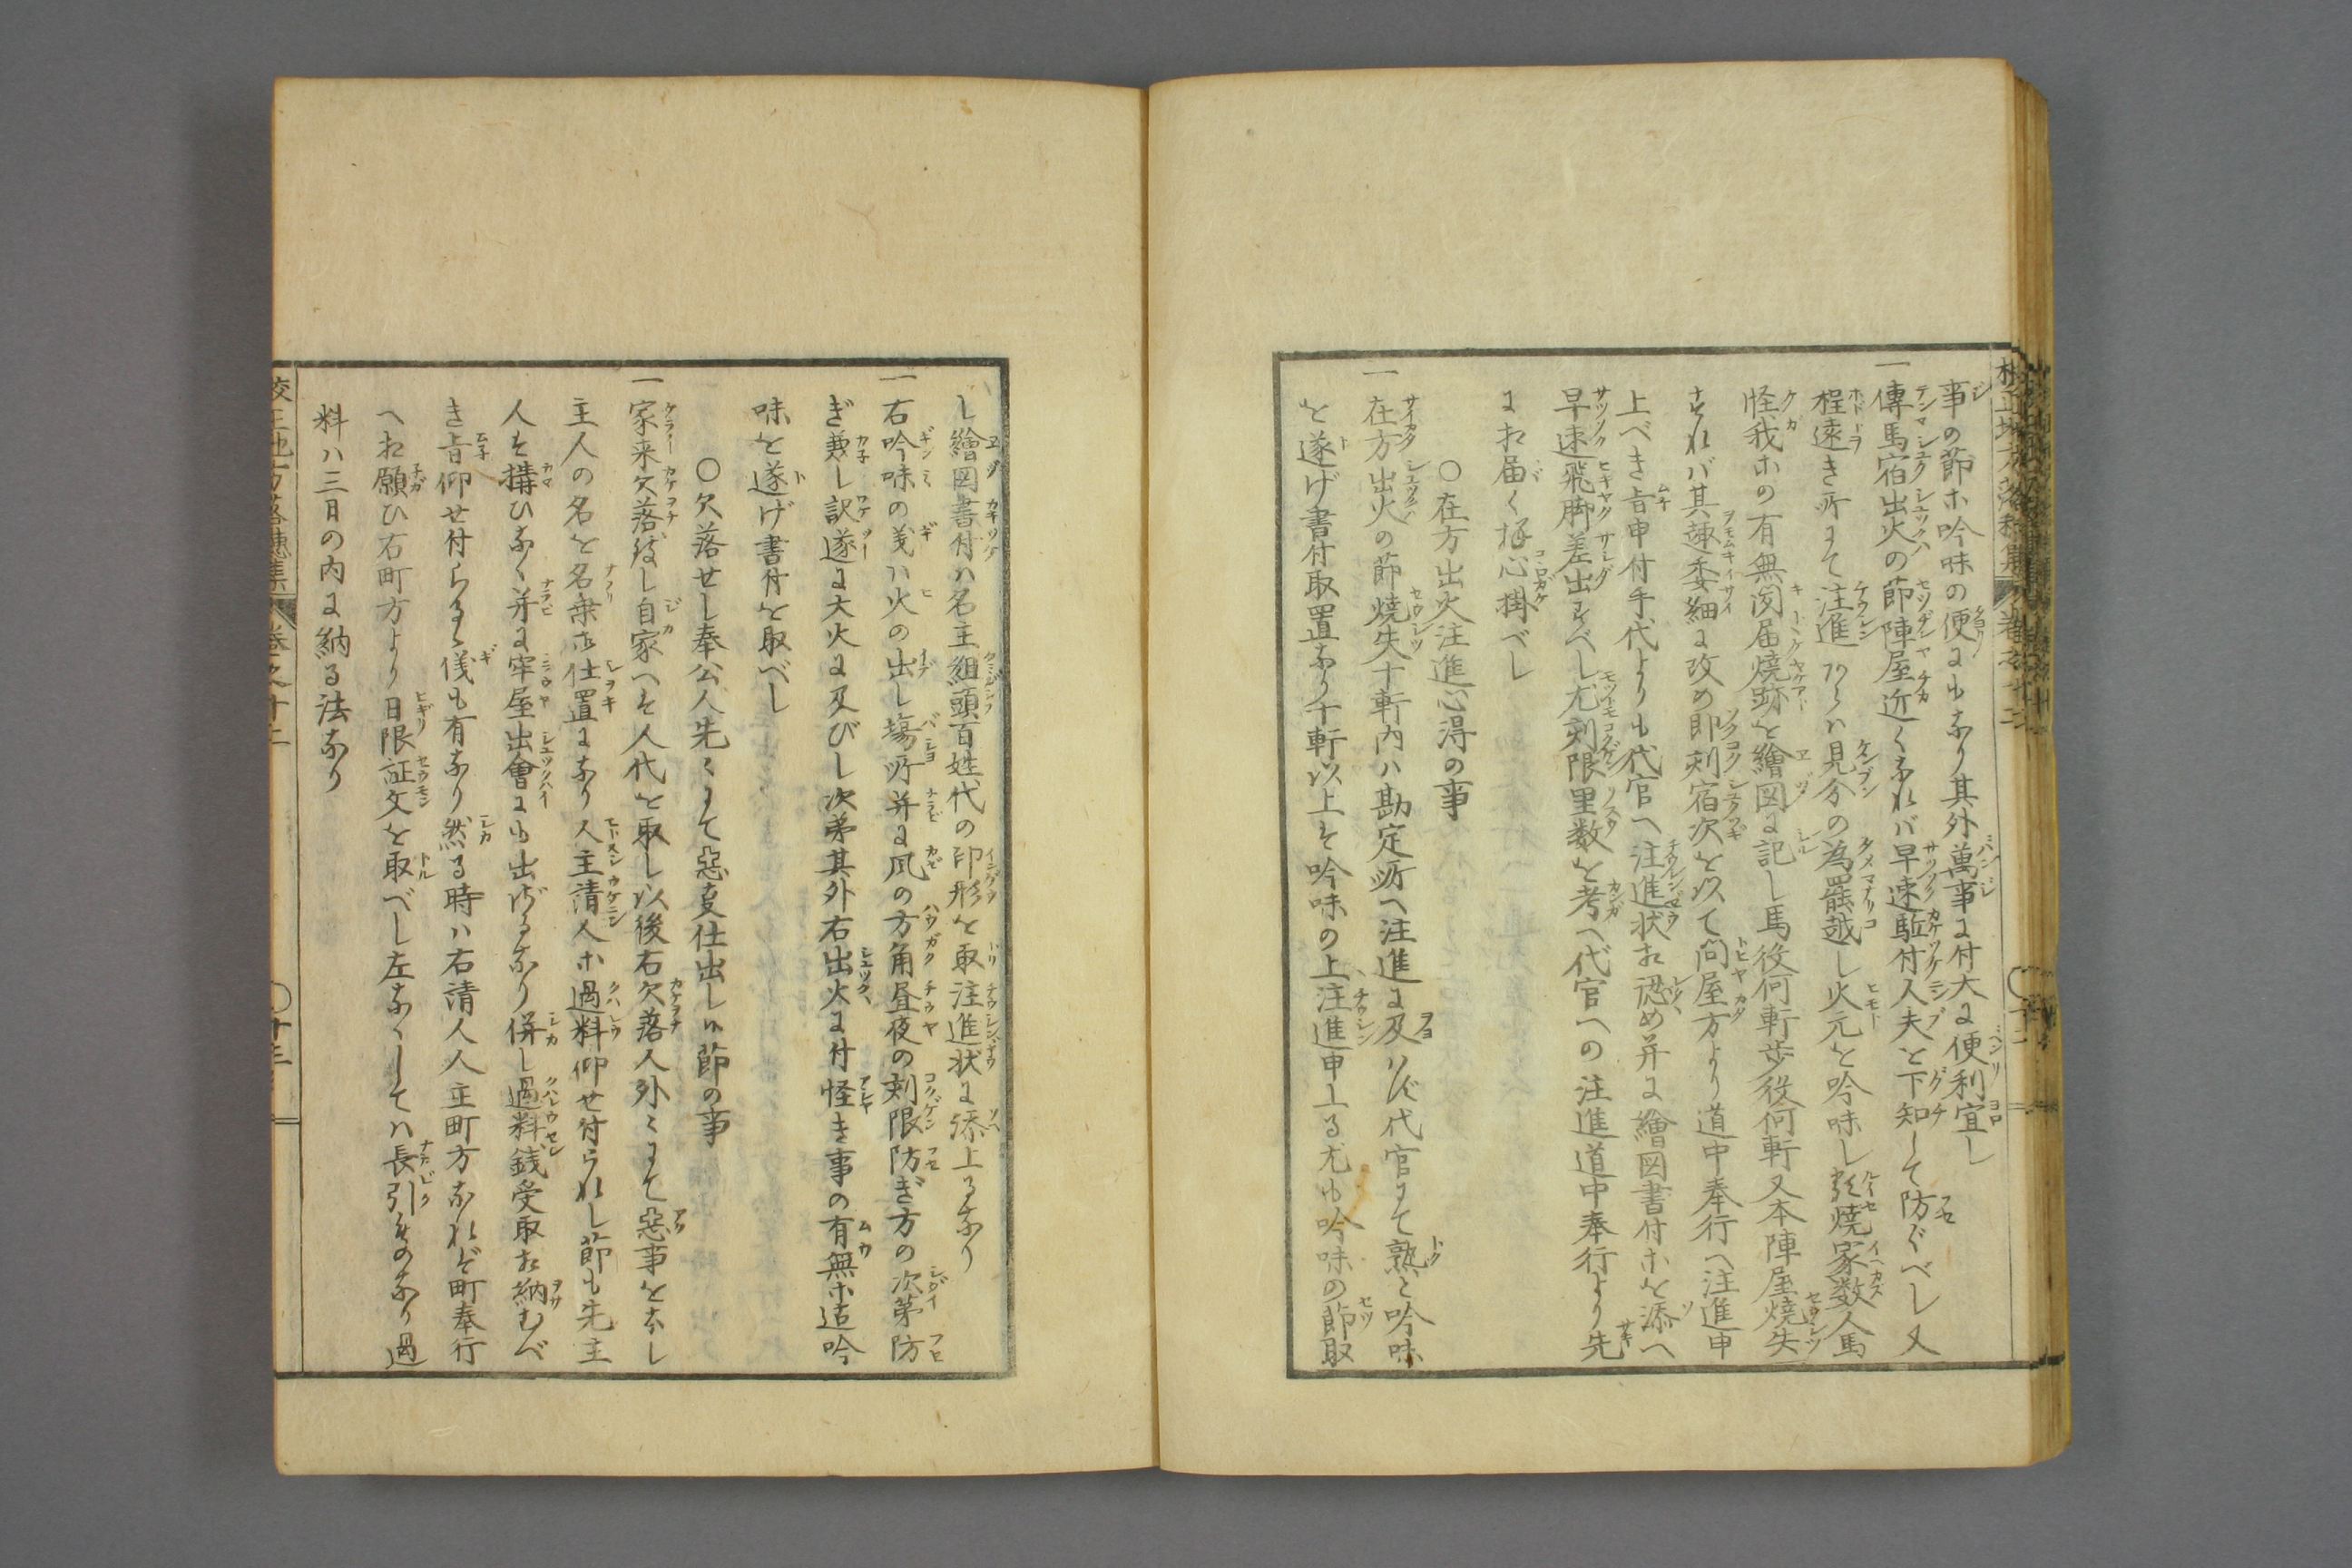 事の節ホ吟味の便にもなり其外萬事に付大に便利宜し
一傳馬宿出火の節陣屋近くなれバ早速駈付人夫を下知して防ぐべし又
程遠き所にて注進アラバ見分の為罷越し火元を吟味し類焼家数人馬
怪我ホの有無聞届焼跡を繪図に記し馬役何軒歩役何軒又本陣屋焼失
すれバ其趣委細に攻め即刻宿次を以て問屋方より道中奉行へ注進申
上べき旨申付手代よりも代官へ注進状相認め并に繪図書付ホを添へ
早速飛脚差出すべし尤刻限里数を考へ代官への注進道中奉行より先
に相届く様心掛べし
○在方出火注進心得の事
一在方出火の節焼失十軒内ハ勘定所へ注進に及バず代官にて熟と吟味
を遂げ書付取置なり十軒以上は吟味の上注進申上る尤も吟味の節取
し繪図書付ハ名主組頭百姓代の印形を取注進状に添上るなり
一右吟味の義ハ火の出し場所并に風の方角昼夜の刻限防ぎ方の次第防
ぎ兼し訳遂に大火に及びし次第其外右出火に付怪き事の有無ホ迠吟
味を遂げ書付を取べし
○欠落せし奉公人先々にて惡事仕出し節の事
一家来欠落致し自家へは人代を取し以後右欠落人外々にて惡事をなし
主人の名を名乗ホ仕置になり人主請人ホ過料仰せ付られし節も先主
人は構ひなく并に牢屋出會にも出ざるなり併し過料銭受取相納むべ
き旨仰せ付らるゝ儀も有なり然る時ハ右請人人主町方なれば町奉行
へ相願ひ右町方より日限証文を取べし左なくしてハ長引ものなり過
料ハ三日の内に納る法なり
校正地方落穂集 卷之十二
○十三